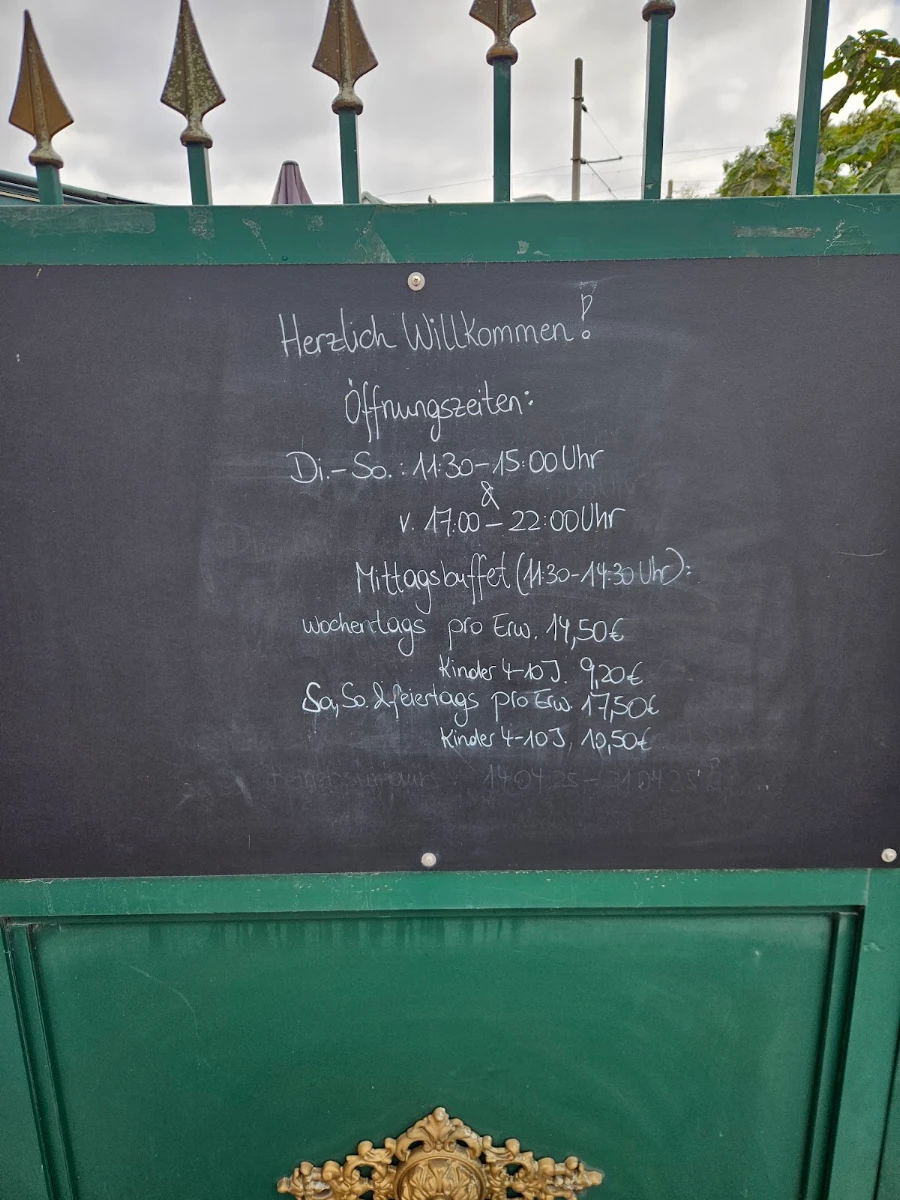 Herzlich Willkommen!
Öffnungszeiten:
Di.-So.: 11:30-15:00 Uhr
&
v. 17:00 - 22:00 Uhr
Mittagsbuffet (11:30-14:30 Uhr):
wochentags pro Erw. 14,50€
Kinder 4-10 J. 9,20€
Sa, So. & feiertags pro Erw. 17,50€
Kinder 4-10 J. 10,50€
14.04.25 - 21.04.25